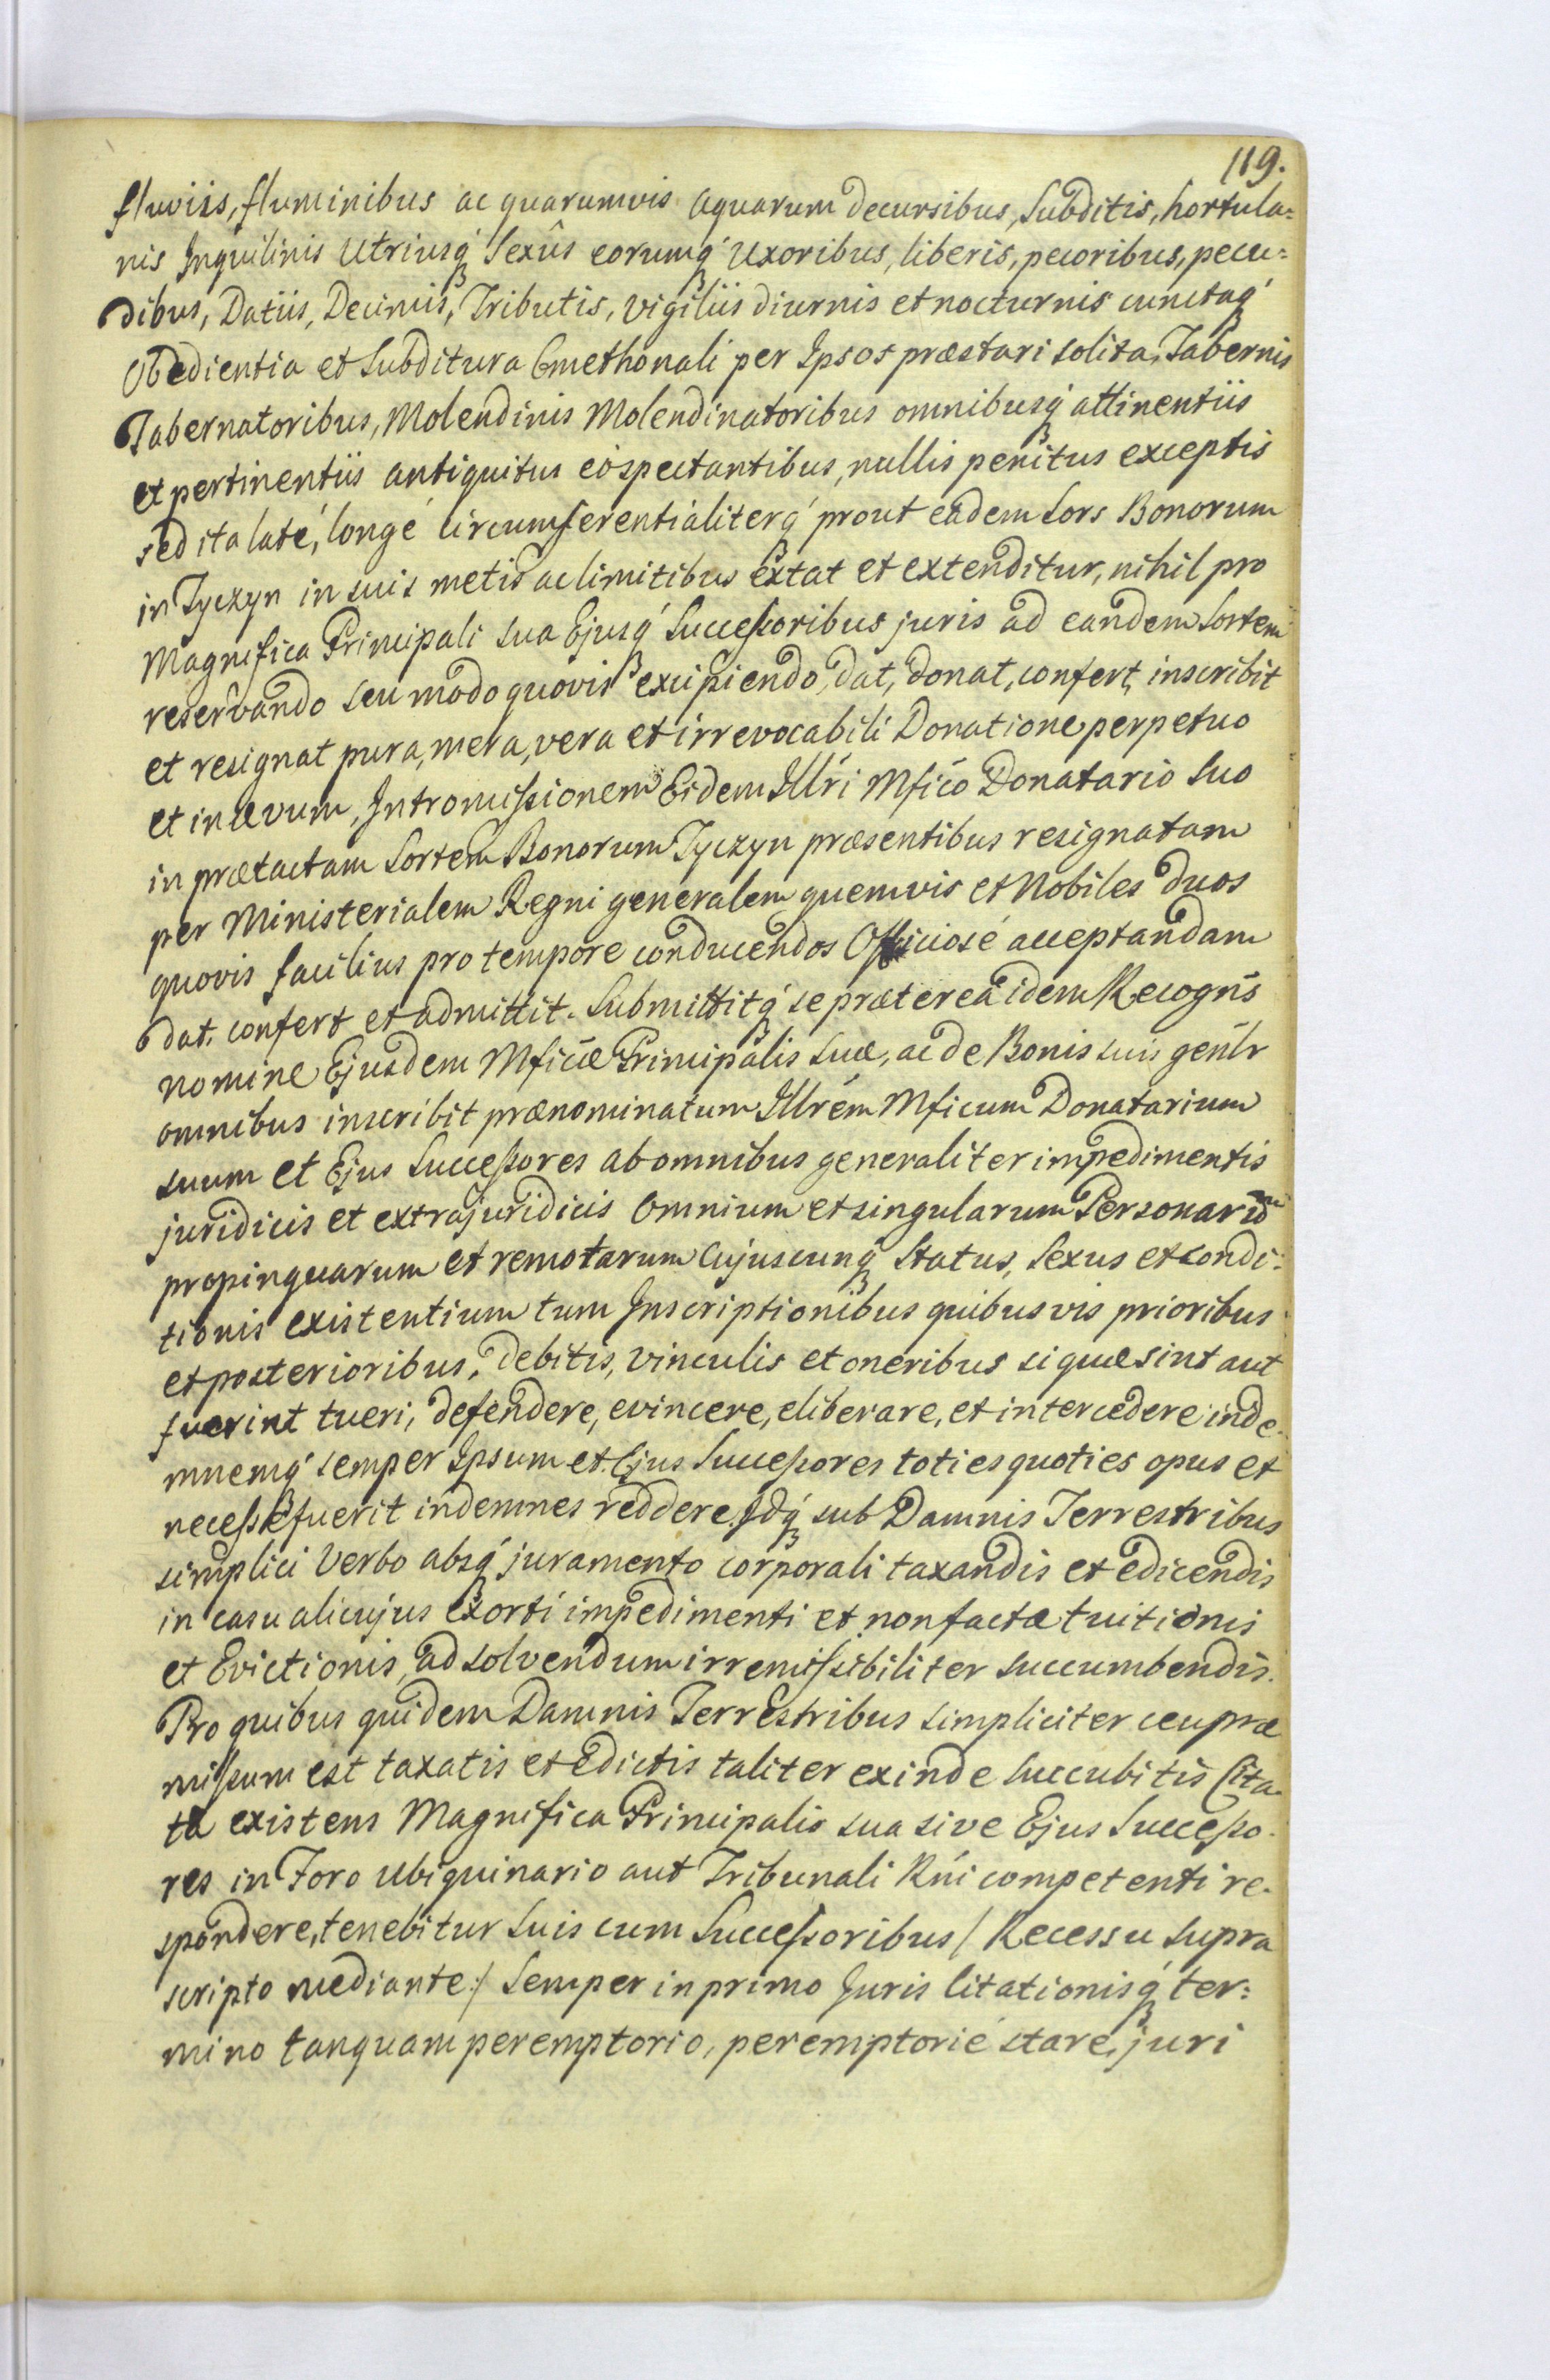 119.
fluviis, fluminibus ac quarumvis aquarum decursibus, Subditis, hortula=
nis Inquilinis Utriusq́ Sexûs eorumq́ Uxoribus, liberis, pecoribus, pecu=
dibus, Datiis, Decimis, Tributis, vigiliis diurnis et nocturnis cunctaq́
Obedientia et Subditura Cmethonali per Ipsos præstari solita, Tabernis
Tabernatoribus, Molendinis Molendinatoribus omnibusq́ attinentiis
et pertinentiis antiquitus eò spectantibus, nullis penitus exceptis
sed ita laté, longé circumferentialiterq́ prout eadem Sors Bonorum
in Tyczyn in suis metis ac limitibus extat et extenditur, nihil pro
Magnifica Principali sua Ejusq́ Successoribus juris ad eandem Sortem
reservando seu modo quovis excipiendo, dat, donat, confert, inscribit
et resignat pura, mera, vera et irrevocabili Donatione perpetuo
et in ævum, Intromissionem Eidem Illri Mfico Donatario Suo
in prætactam Sortem Bonorum Tyczyn præsentibus resignatam
per Ministerialem Regni generalem quemvis et Nobiles duos
quovis facilius pro tempore conducendos Officiosé acceptandam
dat. confert et admittit. Submittitq́ se prætereà idem Recogns
nomine Ejusdem Mficæ Principalis Suæ, ac de Bonis suis genlr
omnibus inscribit prænominatum Illrem Mficum Donatarium
suum et Ejus Successores ab omnibus generaliter impedimentis
juridicis et extrajuridicis Omnium et singularum Personarũ
propinquarum et remotarum Cujuscunq́ Status, Sexus et condi=
tionis existentium tum Inscriptionibus quibusvis prioribus
et posterioribus, debitis, vinculis et oneribus si quæ sint aut
fuerint tueri, defendere, evincere, eliberare, et intercedere inde
mnemq́ semper Ipsum et Ejus Successores toties quoties opus et
necesse fuerit indemnes reddere. Idq́ sub Damnis Terrestribus
simplici Verbo absq́ juramento corporali taxandis et edicendis
in casu alicujus exorti impedimenti et non factæ tuitionis
et Evictionis, ad solvendum irremissibiliter succumbendis.
Pro quibus quidem Damnis Terrestribus simpliciter ceu præ
missum est taxatis et edictis taliter exinde succubitis Cita
ta existens Magnifica Principalis sua sive Ejus Successo-
res in Foro Ubiquinario aut Tribunali Rni competenti re-
spondere, tenebitur Suis cum Successoribus / Recessu supra
scripto mediante / Semper in primo Juris Citationisq́ ter=
mino tanquam peremptorio, peremptorié stare, juri